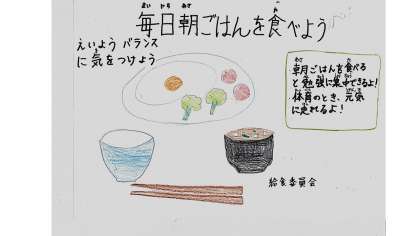 毎日朝ごはんを食べよう
えいよう バランス
に気をつけよう
朝ごはんを食べる
と勉強に集中できるよ！
体育のとき、元気
に走れるよ！
給食委員会